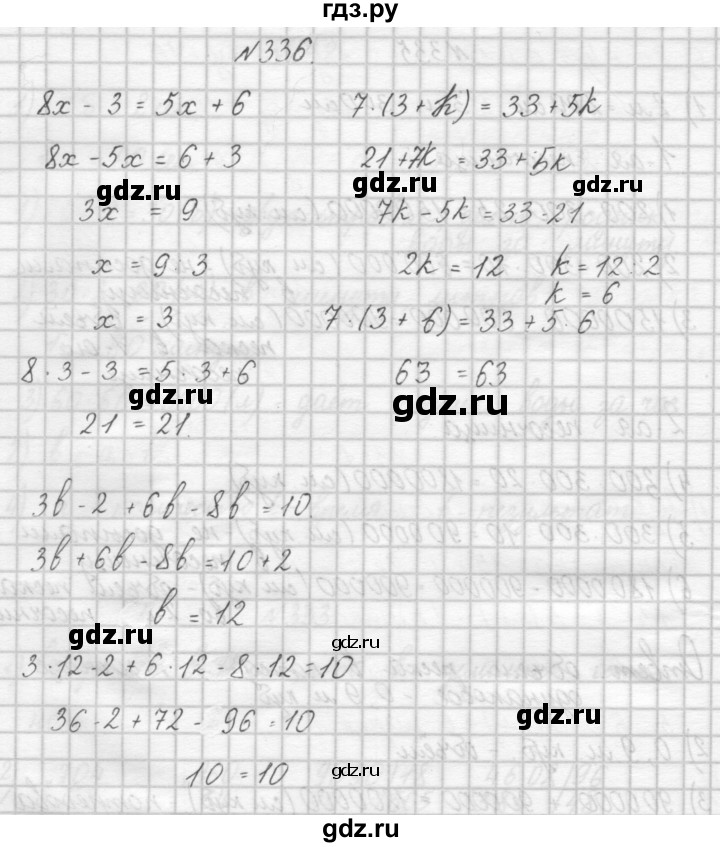 гдз.ру
№336.
8x - 3 = 5x + 6
8x - 5x = 6 + 3
gdz.ru
3x = 9
x = 9:3
x = 3
8·3 - 3 = 5·3 + 6
gdz.ru
21 = 21.
7·(3 + k) = 33 + 5k
21 + 7k = 33 + 5k
gdz.ru
gdz.ru
7k - 5k = 33 - 21
2k = 12 k = 12 : 2
k = 6
7·(3 + 6) = 33 + 5·6
63 = 63
gdz.ru
3b - 2 + 6b - 8b = 10.
3b + 6b - 8b = 10 + 2
b = 12
gdz.ru
gdz.ru
3·12 - 2 + 6·12 - 8·12 = 10
36 - 2 + 72 - 96 = 10
gdz.ru
10 = 10
gdz.ru
gdz.ru